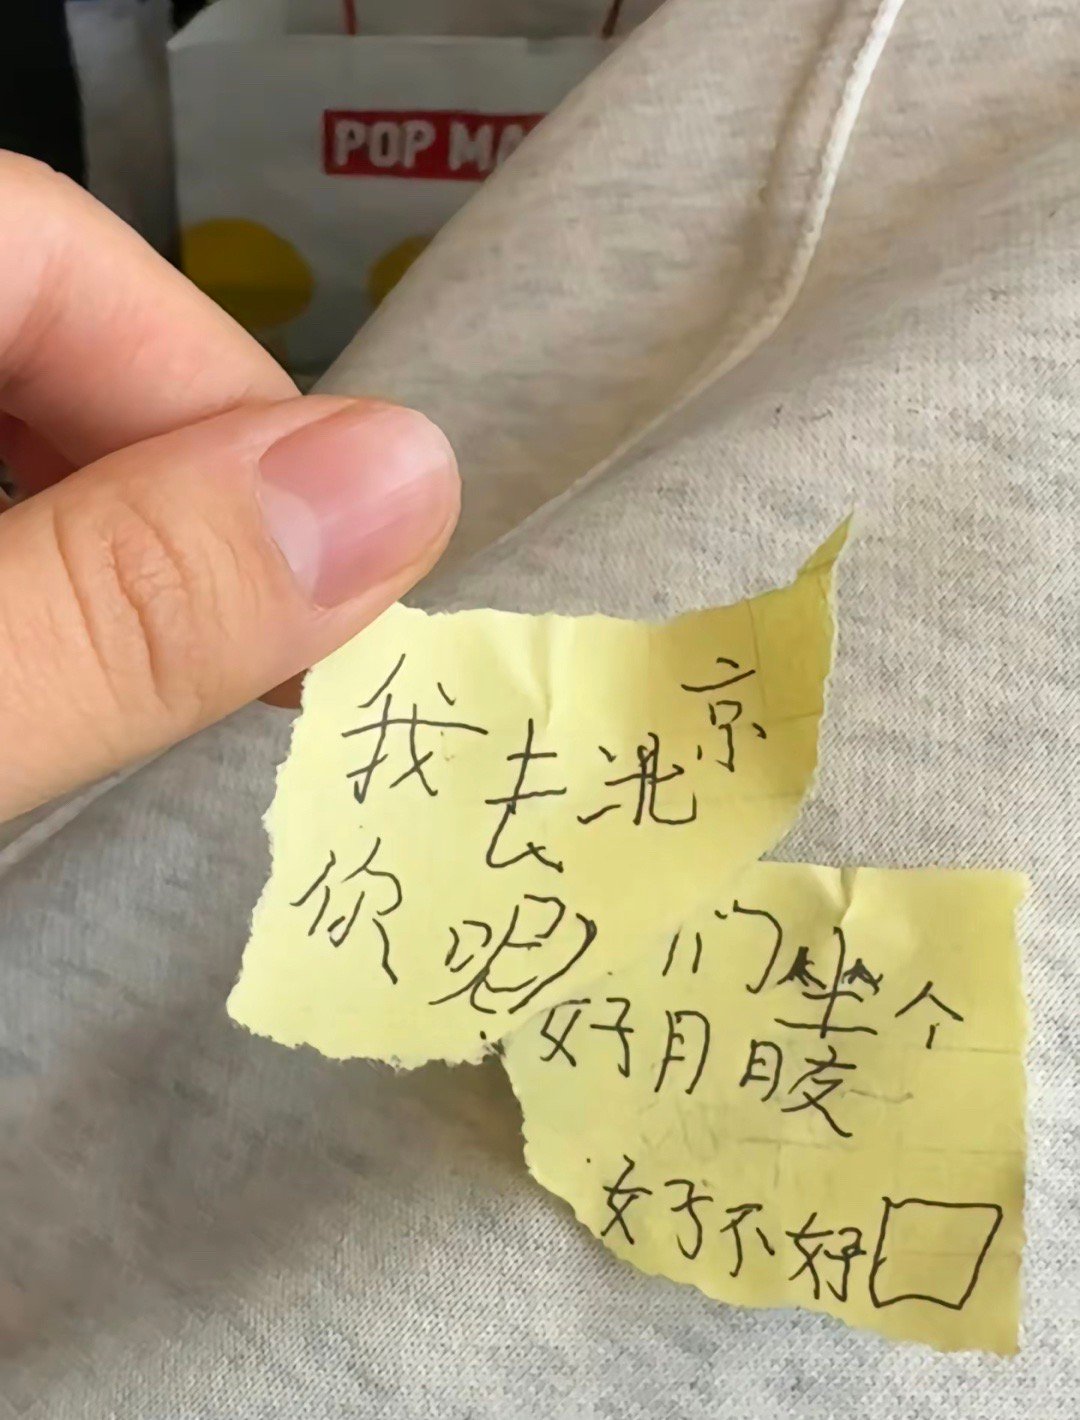 POP MA
我去北京
你吧
们坐个
好月
好不好□